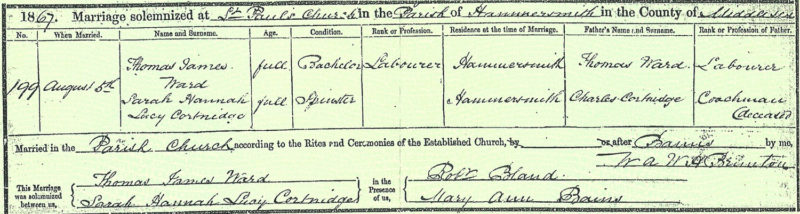 1867. Marriage solemnized at St Paul's Church in the Parish of Hammersmith in the County of Middlesex
No. When Married. Name and Surname. Age. Condition. Rank or Profession. Residence at the time of Marriage. Father's Name and Surname. Rank or Profession of Father.
199 August 5th Thomas James Ward full Bachelor Labourer Hammersmith Thomas Ward Labourer
Sarah Hannah Lucy Cortnidge full Spinster Hammersmith Charles Cortnidge Coachman (deceased)
Married in the Parish Church according to the Rites and Ceremonies of the Established Church, by or after Banns by me,
W A W
This Marriage was solemnized between us, Thomas James Ward in the Presence of us, Robt Bland
Sarah Hannah Lucy Cortnidge Mary Ann Bains